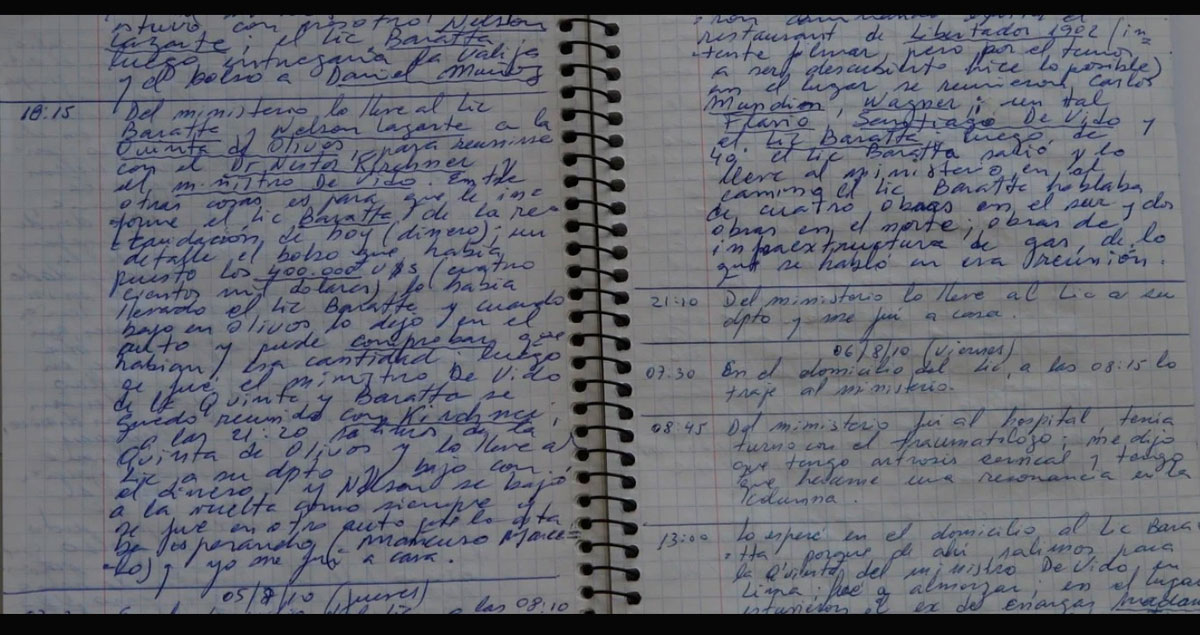 estuvo con nosotros Nelson
Lazarte, el Lic Baratta
luego entregaria la Valija
y el bolso a Daniel Muñoz
18:15 Del ministerio lo lleve al Lic
Baratta y Nelson Lazarte a la
Quinta de Olivos, para reunirse
con el Dr Nestor Kirchner y
el ministro De Vido. Entre
otras cosas es para que le in
forme el Lic Baratta de la re
caudación de hoy (dinero); un
detalle el bolso que había
puesto los 400.000 U$S (cuatro
cientos mil dolares) lo había
llevado el Lic Baratta y cuando
bajo en Olivos lo dejo en el
auto y pude comprobar que
habian esa cantidad; luego
se fue el ministro De Vido
de la Quinta y Baratta se
quedo reunido con Kirchner;
a las 21:20 salimos de la
Quinta de Olivos y lo lleve al
Lic a su dpto y bajo con
el dinero y Nelson se bajo
a la vuelta como siempre y
se fue en otro auto que lo esta
ba esperando (Mancuso Marce=
lo) y yo me fui a casa.
05/8/10 (jueves)
a las 08:10
restaurant de Libertador 1902 (in=
tente filmar, pero por el temor
a ser descubierto hice lo posible)
en el lugar se reunieron Carlos
Mundin, Wagner; un tal
Flavio, Santiago De Vido y
el Lic Baratta. Luego de
40' el Lic Baratta salió y lo
lleve al ministerio, en el
camino el Lic Baratta hablaba
de cuatro obras en el sur y dos
obras en el norte; obras de
infraextructura de gas, de lo
que se habló en esa reunión.
21:10 Del ministerio lo lleve al Lic a su
dpto y me fui a casa.
06/8/10 (Viernes)
07:30 En el domicilio del Lic, a las 08:15 lo
traje al ministerio.
08:45 Del ministerio fui al hospital, tenia
turno con el traumatologo; me dijo
que tengo artrosis cervical y tengo
que hacerme una resonancia en la
columna.
13:00 Lo esperé en el domicilio al Lic Bara
tta porque de ahi salimos para
la Quinta del ministro De Vido, en
Lima; fue a almorzar; en el lugar
estuvieron el ex de enargas